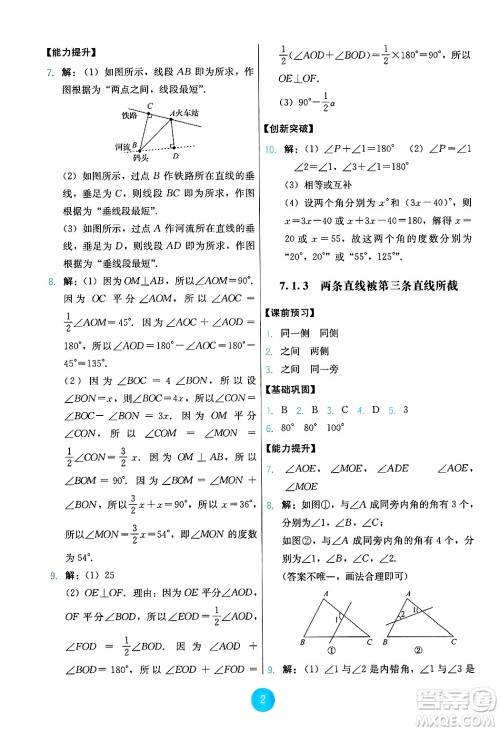 【能力提升】
7. 解：(1) 如图所示，线段 AB 即为所求，作
图根据为“两点之间，线段最短”.
C
铁路
A火车站
河流
B
码头
D
(2) 如图所示，过点 B 作铁路所在直线的垂
线，垂足为 C，则线段 BC 即为所求，作图
根据为“垂线段最短”.
(3) 如图所示，过点 A 作河流所在直线的垂
线，垂足为 D，则线段 AD 即为所求，作图
根据为“垂线段最短”.
8. 解：(1) 因为 OA⊥OB，所以∠AOB=90°.
因为 OC 平分∠AOB，所以∠AOC=
1/2∠AOB=45°. 因为∠AOC+∠AOD=
180°，所以∠AOD=180°－∠AOC=180°－
45°=135°.
(2) 因为∠BOC=4∠BON，所以设
∠BON=x，则∠BOC=4x. 所以∠CON=
∠BOC－∠BON=3x. 因为 OM 平分
∠CON，所以∠COM=∠MON=
1/2∠CON=3/2x. 因为 OM⊥OB，所以
∠BOM=90°. 所以∠BOM=3/2x+x=
90°. 所以x=36°. 所以∠MON=
3/2x=3/2×36°=54°，即∠MON 的度数
为54°.
9. 解：(1) 25
(2) OE⊥OF. 理由：因为 OE 平分∠AOD，
OF 平分∠BOD，所以∠EOD=1/2∠AOD，
∠FOD=1/2∠BOD. 因为∠AOD+
∠BOD=180°，所以∠EOD+∠FOD=
1/2(∠AOD+∠BOD)=1/2×180°=90°，所以
OE⊥OF.
(3) 90°－1/2a
【创新突破】
10. 解：(1) ∠P+∠1=180° (2) ∠P=
∠1 ∠3+∠4=180° ∠1=∠2
(3) 相等或互补
(4) 设两个角分别为 x°和(3x－40)°，则
x=3x－40 或 x+(3x－40)=180，解得
x=20 或 x=55，故两个角的度数分别为
“20°，20°”或“55°，125°”.
7.1.3 两条直线被第三条直线所截
【课前预习】
1. 同一侧 同侧
2. 之间 两侧
3. 之间 同一旁
【基础巩固】
1. B 2. B 3. B 4. D 5. 3
6. 80° 80° 100°
【能力提升】
7. ∠AOE，∠MOE，∠ADE ∠AOE，
∠MOE
8. 解：如图①，与∠A 成同旁内角的角有 3 个，
分别为∠1，∠B，∠C；
如图②，与∠A 成同旁内角的角有 4 个，分
别为∠1，∠2，∠B，∠C.
(答案不唯一，画出符合题意的图即可)
A
1
B
C
①
A
1
2
B
C
②
9. 解：(1) ∠1 与∠2 是内错角，∠1 与∠3 是
2
答案圈